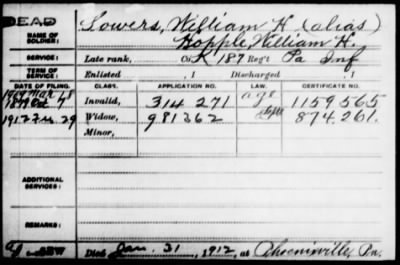 DEAD
Sowers, William H (alias)
NAME OF SOLDIER:
Hopple, William H.
SERVICE: Late rank, Co. K, 187 Reg't Pa Inf
TERM OF SERVICE: Enlisted , 1 Discharged , 1
DATE OF FILING. CLASS. APPLICATION NO. LAW. CERTIFICATE NO.
Invalid, 314 271 age 1159565
1912 29 Widow, 981362 874.261.
Minor,
ADDITIONAL SERVICES:
REMARKS:
Died Jan. 31, 1912, at Phoenixville, Pa.